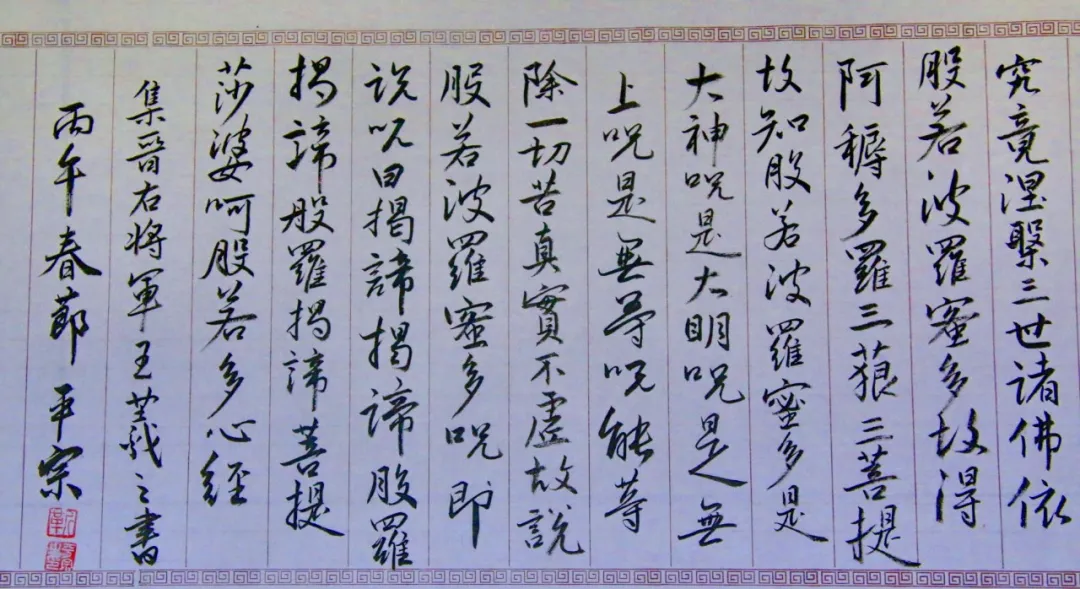 究竟涅槃三世诸佛依
般若波羅蜜多故得
阿耨多羅三藐三菩提
故知般若波羅蜜多是
大神呪是大明呪是无
上呪是無等呪能等
除一切苦真實不虛故說
般若波羅蜜多呪即
说呪曰揭諦揭諦般羅
揭諦般羅揭諦菩提
莎婆呵般若多心經
集晉右将軍王羲之書
丙午春節平宗